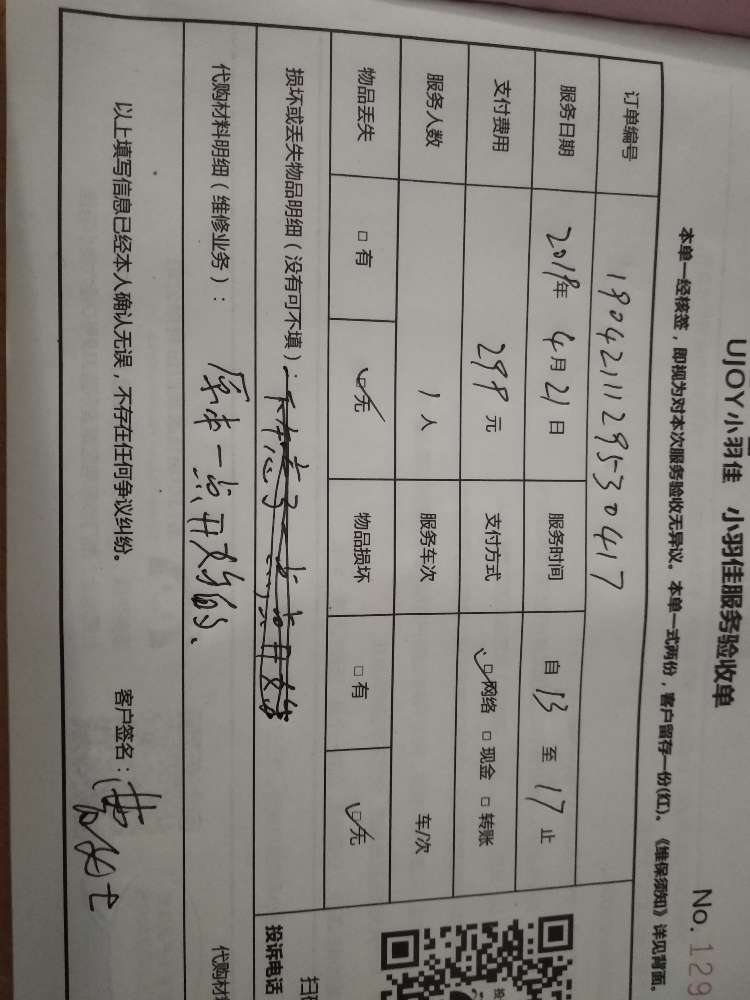 UJOY小羽佳 小羽佳服务验收单
No. 129
本单一经核签，即视为对本次服务验收无异议。本单一式两份，客户留存一份(红)。《维保须知》详见背面。
订单编号 1904211129530417
服务日期 2019年 4月21日 服务时间 自 13 至 17 止
支付费用 299 元 支付方式 □网络 □现金 □转账
服务人数 1人 服务车次 车/次
物品丢失 □有 □无 物品损坏 □有 □无
损坏或丢失物品明细（没有可不填）：
代购材料明细（维修业务）： 原本一点开始的、
代购材
投诉电话
扫
以上填写信息已经本人确认无误，不存在任何争议纠纷。 客户签名：